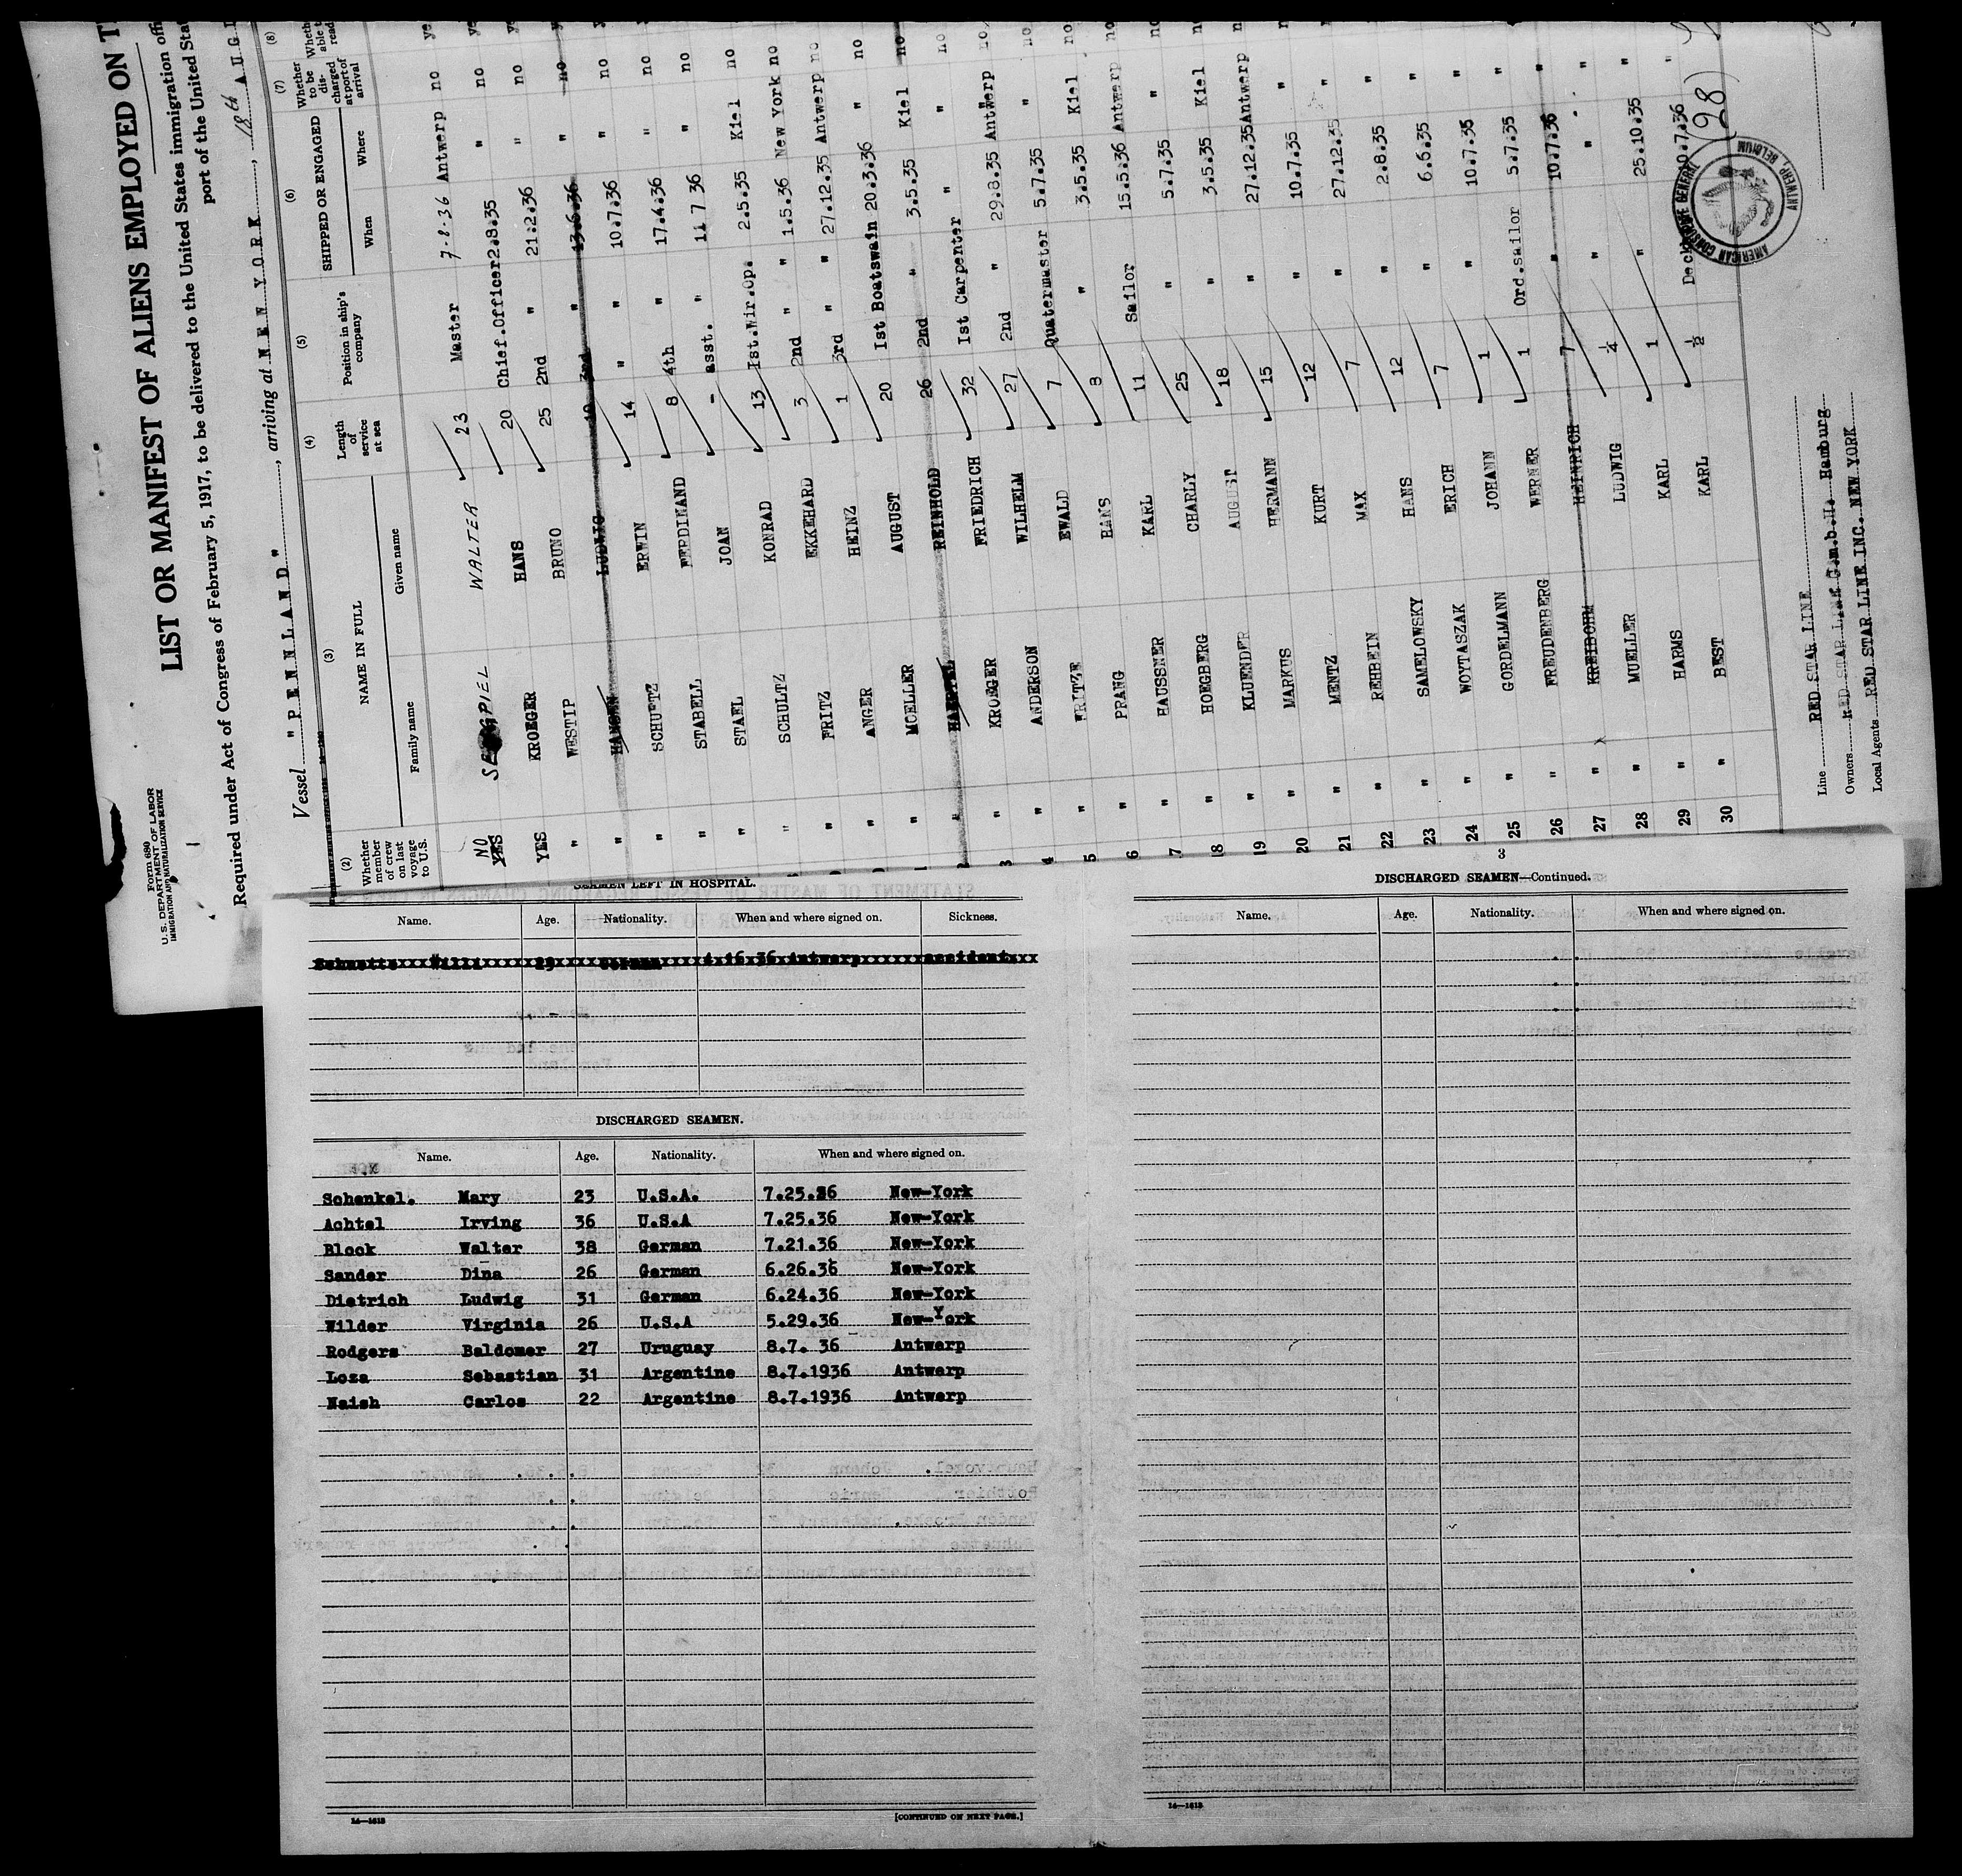 Form 680
U. S. DEPARTMENT OF LABOR
IMMIGRATION AND NATURALIZATION SERVICE
LIST OR MANIFEST OF ALIENS EMPLOYED ON T
Required under Act of Congress of February 5, 1917, to be delivered to the United States immigration offi
port of the United Sta
Vessel " P E N N L A N D ", arriving at N E W Y O R K, 18th A U G
(2) (3) (4) (5) (6) (7) (8)
Whether member of crew on last voyage to U.S.
NAME IN FULL
Family name Given name
Length of service at sea
Position in ship's company
SHIPPED OR ENGAGED
When Where
Whether to be discharged at port of arrival
NO YES SEGPIEL WALTER 23 Master 7-8-36 Antwerp no
YES KROEGER HANS 20 Chief.Officer 2.8.35 " no
" WESTIP BRUNO 25 2nd " 21.2.36 " no
" HANSEN LUDWIG 10 3nd " 13.6.36 " no
" SCHUETZ ERWIN 14 " " 10.7.36 " no
" STABELL FERDINAND 8 4th " 17.4.36 " no
" STAEL JOAN - asst. " 11 7 36 " no
" SCHULTZ KONRAD 13 1st.Wir.Op. 2.5.35 Kiel no
" FRITZ EKKEHARD 3 2nd " " 1.5.36 New York no
" ANGER HEINZ 1 3rd " " 27.12.35 Antwerp no
" MOELLER AUGUST 20 1st Boatswain 20.3.36 " no
" HAERTEL REINHOLD 26 2nd " 3.5.35 Kiel no
" KROEGER FRIEDRICH 32 1st Carpenter " " no
3 " ANDERSON WILHELM 27 2nd " 29.8.35 Antwerp no
4 " FRITZE EWALD 7 Quatermaster 5.7.35 " no
5 " PRANG HANS 8 " 3.5.35 Kiel no
6 " HAUSSNER KARL 11 Sailor 15.5.36 Antwerp no
7 " HOEGBERG CHARLY 25 " 5.7.35 " no
18 " KLUENDER AUGUST 18 " 3.5.35 Kiel n
19 " MARKUS HERMANN 15 " 27.12.35 Antwerp n
20 " MENTZ KURT 12 " 10.7.35 "
21 " REHBEIN MAX 7 " 27.12.35 "
22 " SAMELOWSKY HANS 12 " 2.8.35 "
23 " WOYTASZAK ERICH 7 " 6.6.35 "
24 " GORDELMANN JOHANN 1 " 10.7.35 "
25 " FREUDENBERG WERNER 1 Ord.sailor 5.7.35 "
26 " KREIBOHM HEINRICH 7 " 10.7.36 "
27 " MUELLER LUDWIG ¼ " " "
28 " HARMS KARL 1 " 25.10.35 "
29 " BEST KARL ½ 10.7.36 "
30 "
(28)
AMERICAN CONSULATE GENERAL
ANTWERP, BELGIUM
Line RED STAR LINE
Owners RED STAR LINE G.m.b.H. Hamburg
Local Agents RED STAR LINE INC. NEW YORK
SEAMEN LEFT IN HOSPITAL.
Name. Age. Nationality. When and where signed on. Sickness.
DISCHARGED SEAMEN.
Name. Age. Nationality. When and where signed on.
Schenkel. Mary 23 U.S.A. 7.25.36 New-York
Achtel Irving 36 U.S.A 7.25.36 New-York
Block Walter 38 German 7.21.36 New-York
Sander Dina 26 German 6.26.36 New-York
Dietrich Ludwig 31 German 6.24.36 New-York
Wilder Virginia 26 U.S.A 5.29.36 New-York
Rodgers Baldomer 27 Uruguay 8.7. 36 Antwerp
Loza Sebastian 31 Argentine 8.7.1936 Antwerp
Naish Carlos 22 Argentine 8.7.1936 Antwerp
14—1613
[CONTINUED ON NEXT PAGE.]
3
DISCHARGED SEAMEN—Continued.
Name. Age. Nationality. When and where signed on.
14—1613